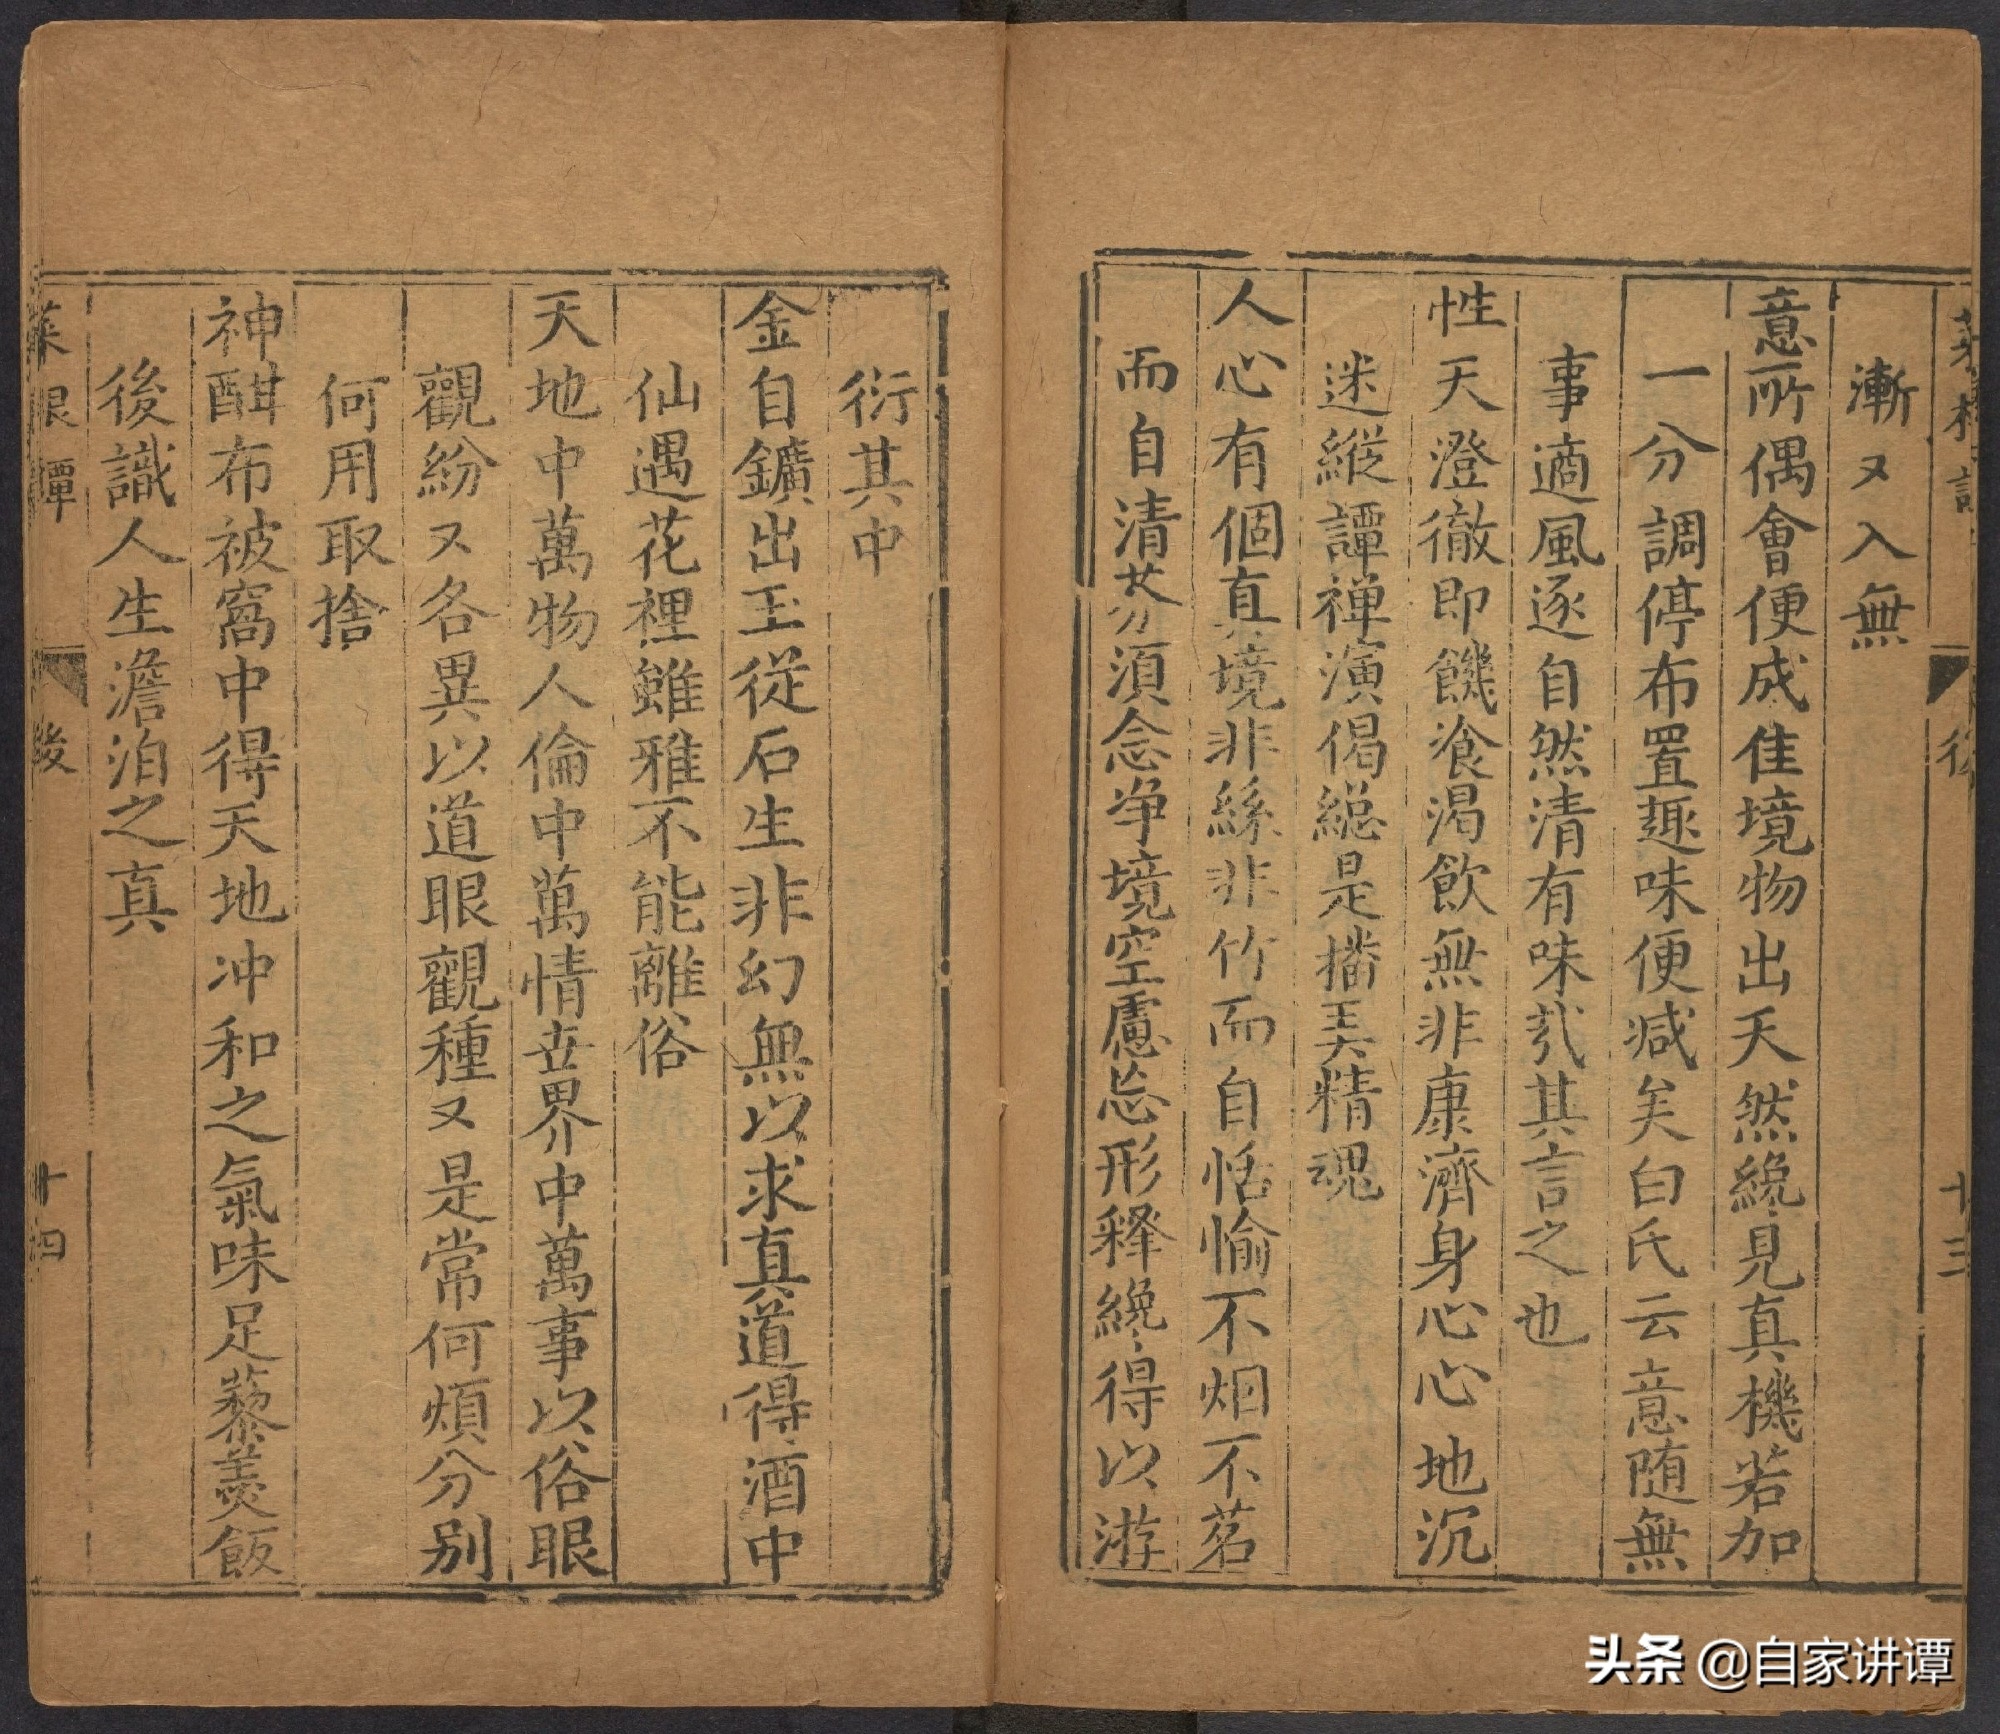 漸〻入無
意所偶會便成佳境物出天然纔見真機若加
一分調停布置趣味便减矣白氏云意随無
事適風逐自然清有味㦲其言之也
性天澄徹即饑飡渴飲無非康濟身心心地沉
迷縱譚禅演偈総是播弄精魂
人心有個真境非絲非竹而自恬愉不烟不茗
而自清芬須念净境空慮忘形釋纔得以游
衍其中
金自鑛出玉從石生非幻無以求真道得酒中
仙遇花裡雖雅不能離俗
天地中萬物人倫中萬情世界中萬事以俗眼
觀紛〻各異以道眼觀種〻是常何煩分别
何用取捨
神酣布被窩中得天地冲和之氣味足藜羮飯
後識人生澹泊之真
菜根譚 後 十四
头条 @自家讲谭